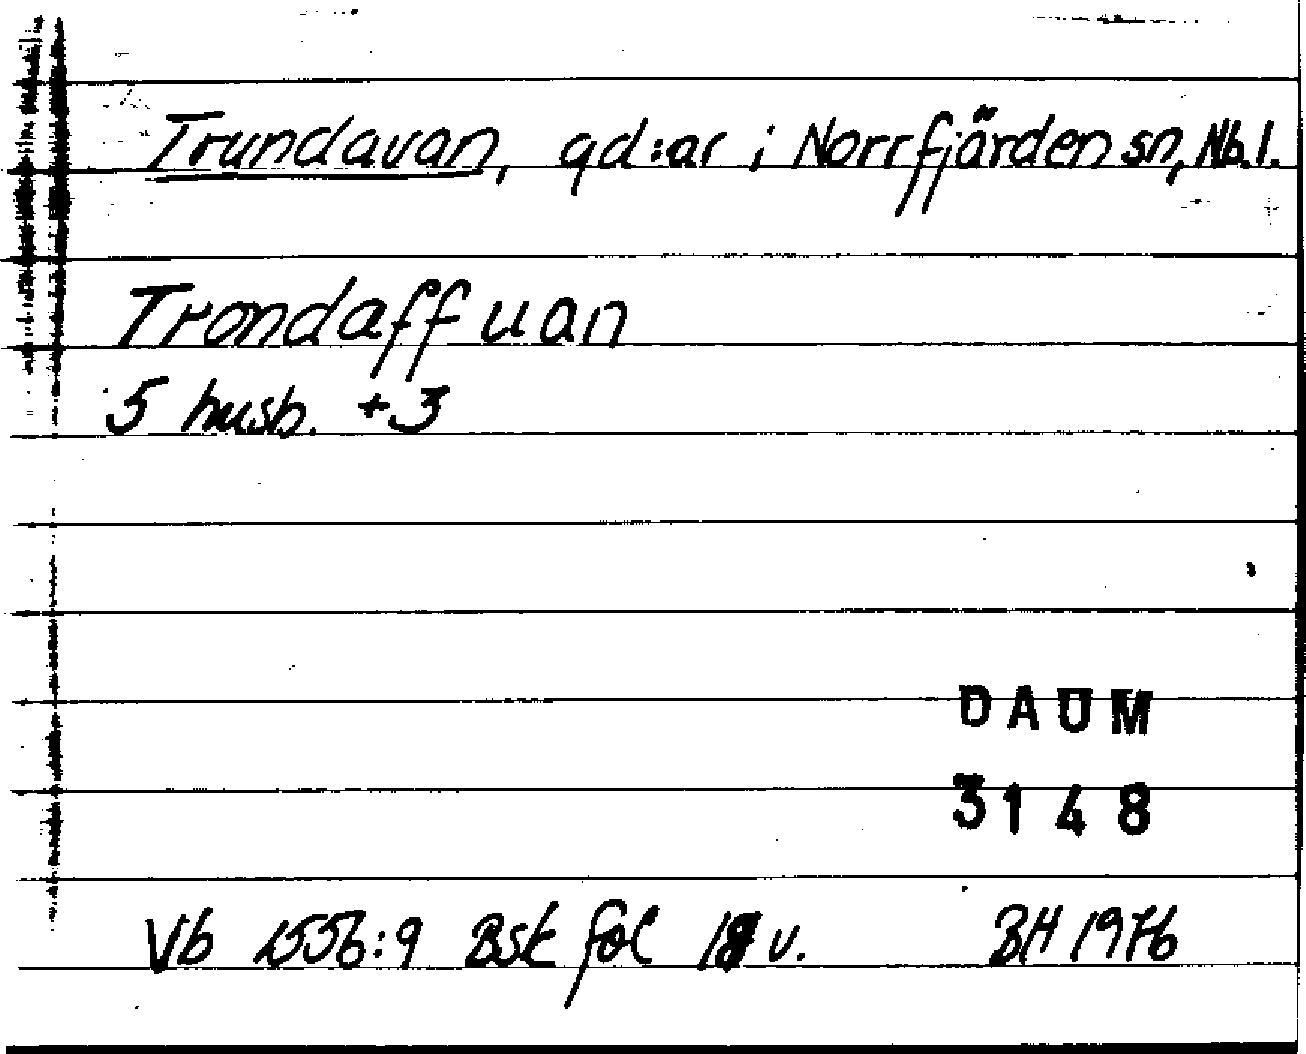 Trundavan, gd:ar i Norrfjärden sn, Nb.l.
Trondaff uan
5 husb. +3
DAUM
3148
Vb 1556:9 Bsk fol v. BH 1976